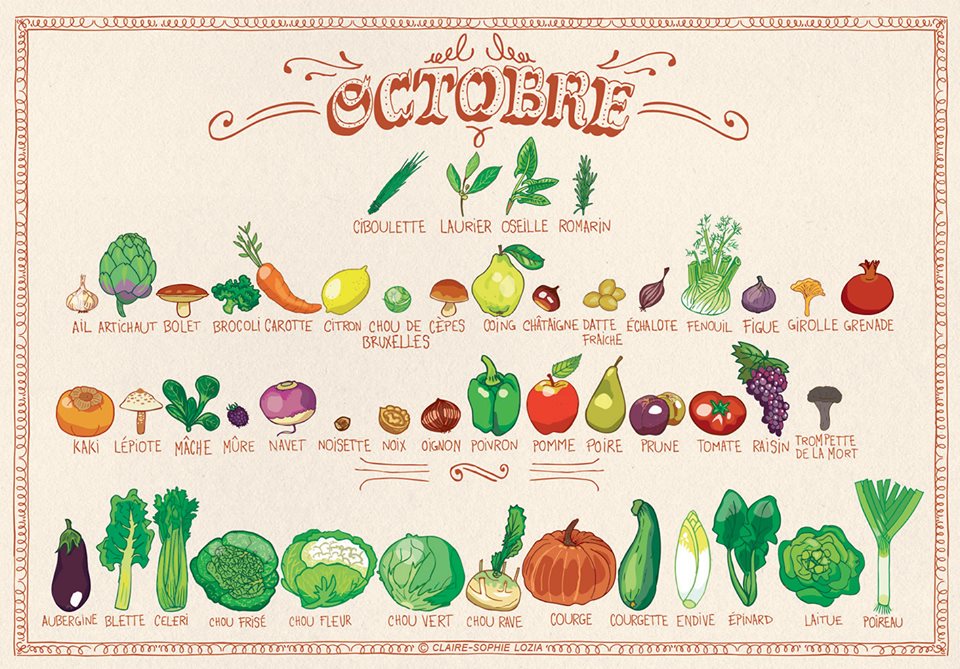 OCTOBRE
CIBOULETTE LAURIER OSEILLE ROMARIN
AIL ARTICHAUT BOLET BROCOLI CAROTTE CITRON CHOU DE BRUXELLES CÈPES COING CHÂTAIGNE DATTE FRAICHE ÉCHALOTE FENOUIL FIGUE GIROLLE GRENADE
KAKI LÉPIOTE MÂCHE MÛRE NAVET NOISETTE NOIX OIGNON POIVRON POMME POIRE PRUNE TOMATE RAISIN TROMPETTE DE LA MORT
AUBERGINE BLETTE CELERI CHOU FRISÉ CHOU FLEUR CHOU VERT CHOU RAVE COURGE COURGETTE ENDIVE ÉPINARD LAITUE POIREAU
© CLAIRE-SOPHIE LOZIA